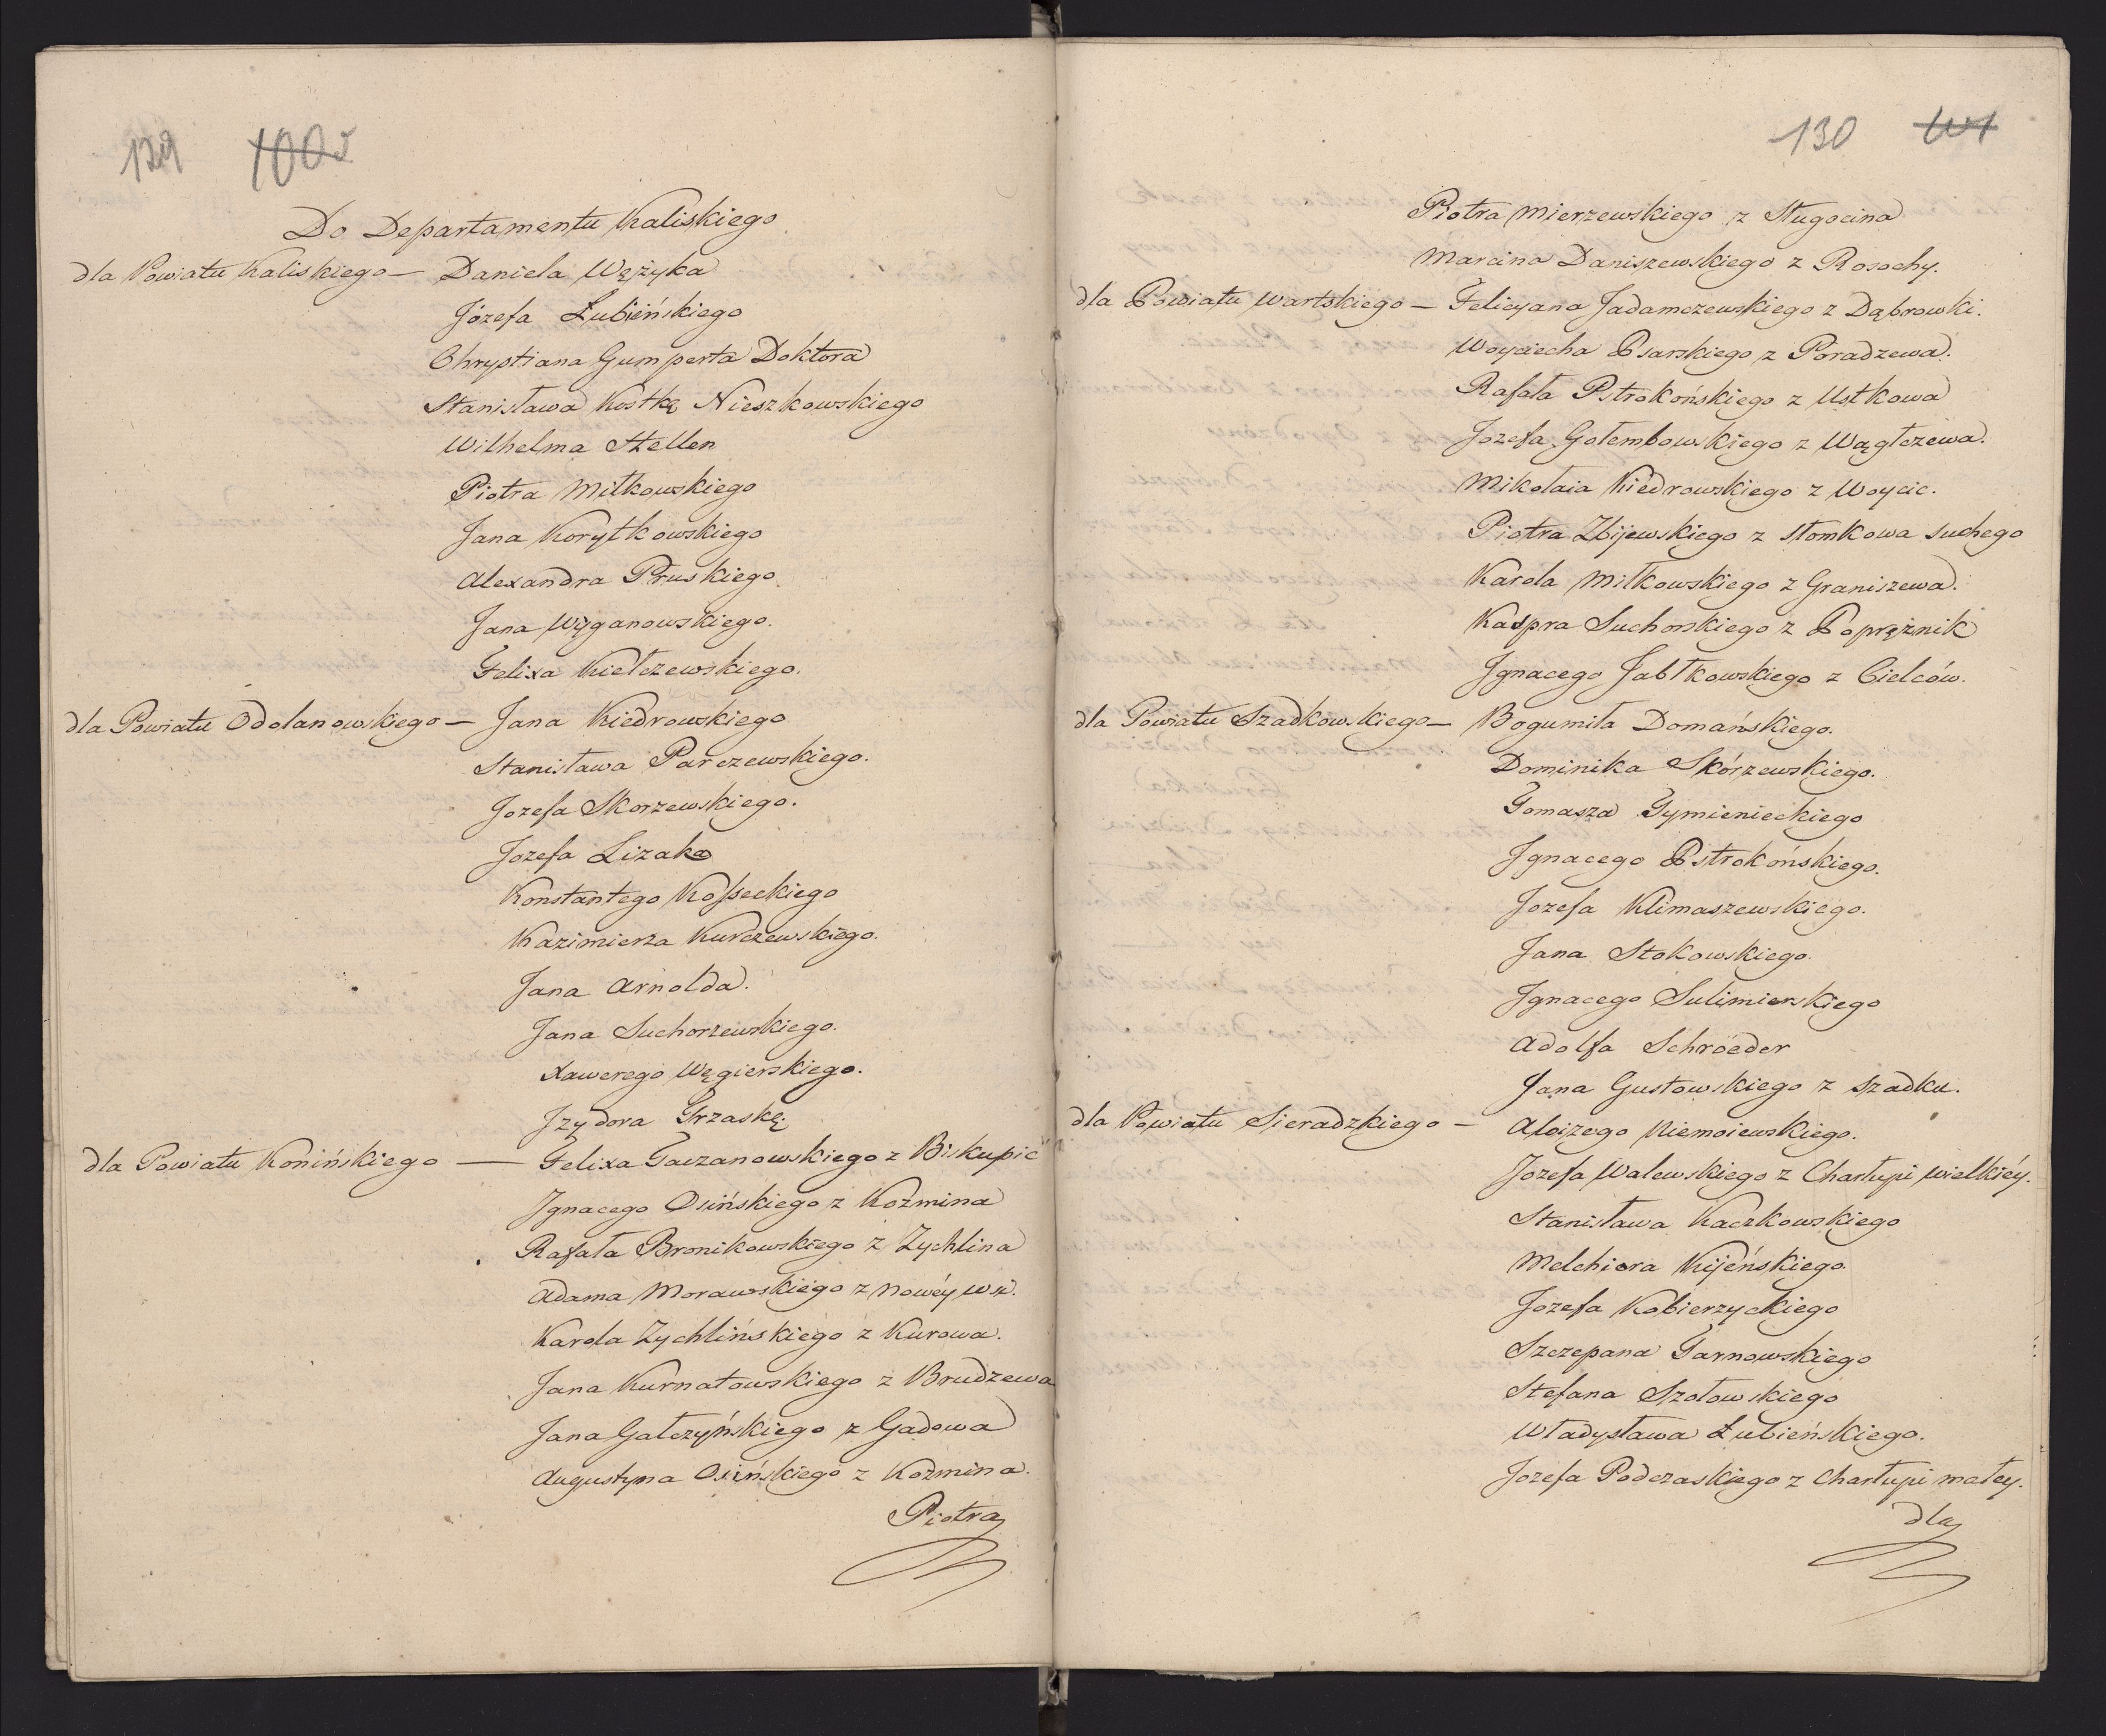 129 100v
Do Departamentu Kaliskiego
dla Powiatu Kaliskiego — Daniela Wężyka
Józefa Łubieńskiego
Chrystiana Gumperta Doktora
Stanisława Kostkę Nieszkowskiego
Wilhelma Hellen
Piotra Miłkowskiego
Jana Korytkowskiego
Alexandra Pruskiego
Jana Wyganowskiego.
Felixa Kiełczewskiego.
dla Powiatu Odolanowskiego — Jana Kiedrowskiego
Stanisława Parczewskiego.
Jozefa Skorzewskiego.
Jozefa Lizaka
Konstantego Kosseckiego
Kazimierza Kurczewskiego.
Jana Arnolda.
Jana Suchorzewskiego.
Xawerego Węgierskiego.
Jzydora Grzaskę
dla Powiatu Konińskiego — Felixa Gaczanowskiego z Biskupic
Jgnacego Osińskiego z Koźmina
Rafała Bronikowskiego z Zychlina
Adama Morawskiego z Nowéy wsi.
Karola Zychlińskiego z Kurowa.
Jana Kurnatowskiego z Brudzewa
Jana Gałczyńskiego z Gadowa
Augustyna Osińskiego z Koźmina.
Piotra
130 101
Piotra Mierzewskiego z Sługocina
Marcina Daniszewskiego z Rosochy.
dla Powiatu Wartskiego — Felicyana Jadamczewskiego z Dąbrowki.
Woyciecha Psarskiego z Poradzewa.
Rafała Pstrokońskiego z Ustkowa
Jozefa Gołembowskiego z Wągłczewa.
Mikołaia Kiedrowskiego z Woycic.
Piotra Zbijewskiego z Słomkowa suchego
Karola Miłkowskiego z Graniszewa.
Kaspra Suchorskiego z Poprężnik
Jgnacego Jabłkowskiego z Cielców.
dla Powiatu Szadkowskiego — Bogumiła Domańskiego.
Dominika Skórzewskiego.
Tomasza Tymienieckiego
Jgnacego Pstrokońskiego.
Jozefa Klimaszewskiego.
Jana Stokowskiego.
Jgnacego Sulimierskiego
Adolfa Schröeder
Jana Gustowskiego z Szadku.
dla Powiatu Sieradzkiego — Aloizego Niemoiewskiego.
Jozefa Walewskiego z Charłupi wielkiéy.
Stanisława Kaczkowskiego
Melchiora Kijeńskiego.
Jozefa Kobierzyckiego
Szczepana Tarnowskiego
Stefana Szołowskiego
Władysława Łubieńskiego.
Jozefa Podczaskiego z Charłupi małey.
dla